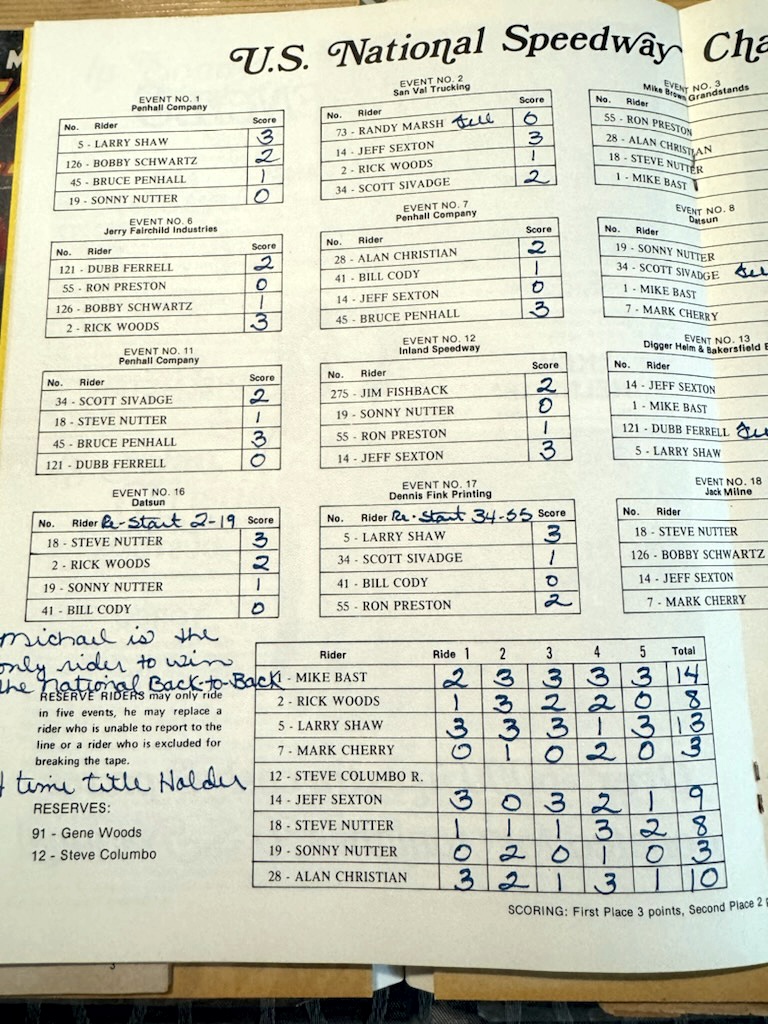 U.S. National Speedway Cha
EVENT NO. 1
Penhall Company
No. Rider Score
5 - LARRY SHAW 3
126 - BOBBY SCHWARTZ 2
45 - BRUCE PENHALL 1
19 - SONNY NUTTER 0
EVENT NO. 2
San Val Trucking
No. Rider Score
73 - RANDY MARSH fell 0
14 - JEFF SEXTON 3
2 - RICK WOODS 1
34 - SCOTT SIVADGE 2
EVENT NO. 3
Mike Brown Grandstands
No. Rider
55 - RON PRESTON
28 - ALAN CHRISTIAN
18 - STEVE NUTTER
1 - MIKE BAST
EVENT NO. 6
Jerry Fairchild Industries
No. Rider Score
121 - DUBB FERRELL 2
55 - RON PRESTON 0
126 - BOBBY SCHWARTZ 1
2 - RICK WOODS 3
EVENT NO. 7
Penhall Company
No. Rider Score
28 - ALAN CHRISTIAN 2
41 - BILL CODY 1
14 - JEFF SEXTON 0
45 - BRUCE PENHALL 3
EVENT NO. 8
Datsun
No. Rider
19 - SONNY NUTTER
34 - SCOTT SIVADGE
1 - MIKE BAST
7 - MARK CHERRY
EVENT NO. 11
Penhall Company
No. Rider Score
34 - SCOTT SIVADGE 2
18 - STEVE NUTTER 1
45 - BRUCE PENHALL 3
121 - DUBB FERRELL 0
EVENT NO. 12
Inland Speedway
No. Rider Score
275 - JIM FISHBACK 2
19 - SONNY NUTTER 0
55 - RON PRESTON 1
14 - JEFF SEXTON 3
EVENT NO. 13
Digger Helm & Bakersfield
No. Rider
14 - JEFF SEXTON
1 - MIKE BAST
121 - DUBB FERRELL
5 - LARRY SHAW
EVENT NO. 16
Datsun
No. Rider Re-Start 2-19 Score
18 - STEVE NUTTER 3
2 - RICK WOODS 2
19 - SONNY NUTTER 1
41 - BILL CODY 0
EVENT NO. 17
Dennis Fink Printing
No. Rider Re-Start 34-55 Score
5 - LARRY SHAW 3
34 - SCOTT SIVADGE 1
41 - BILL CODY 0
55 - RON PRESTON 2
EVENT NO. 18
Jack Milne
No. Rider
18 - STEVE NUTTER
126 - BOBBY SCHWARTZ
14 - JEFF SEXTON
7 - MARK CHERRY
Michael is the
only rider to win
the National Back-to-Back
RESERVE RIDERS may only ride
in five events, he may replace a
rider who is unable to report to the
line or a rider who is excluded for
breaking the tape.
time title Holder
RESERVES:
91 - Gene Woods
12 - Steve Columbo
Rider Ride 1 2 3 4 5 Total
1 - MIKE BAST 2 3 3 3 3 14
2 - RICK WOODS 1 3 2 2 0 8
5 - LARRY SHAW 3 3 3 1 3 13
7 - MARK CHERRY 0 1 0 2 0 3
12 - STEVE COLUMBO R.
14 - JEFF SEXTON 3 0 3 2 1 9
18 - STEVE NUTTER 1 1 1 3 2 8
19 - SONNY NUTTER 0 2 0 1 0 3
28 - ALAN CHRISTIAN 3 2 1 3 1 10
SCORING: First Place 3 points, Second Place 2